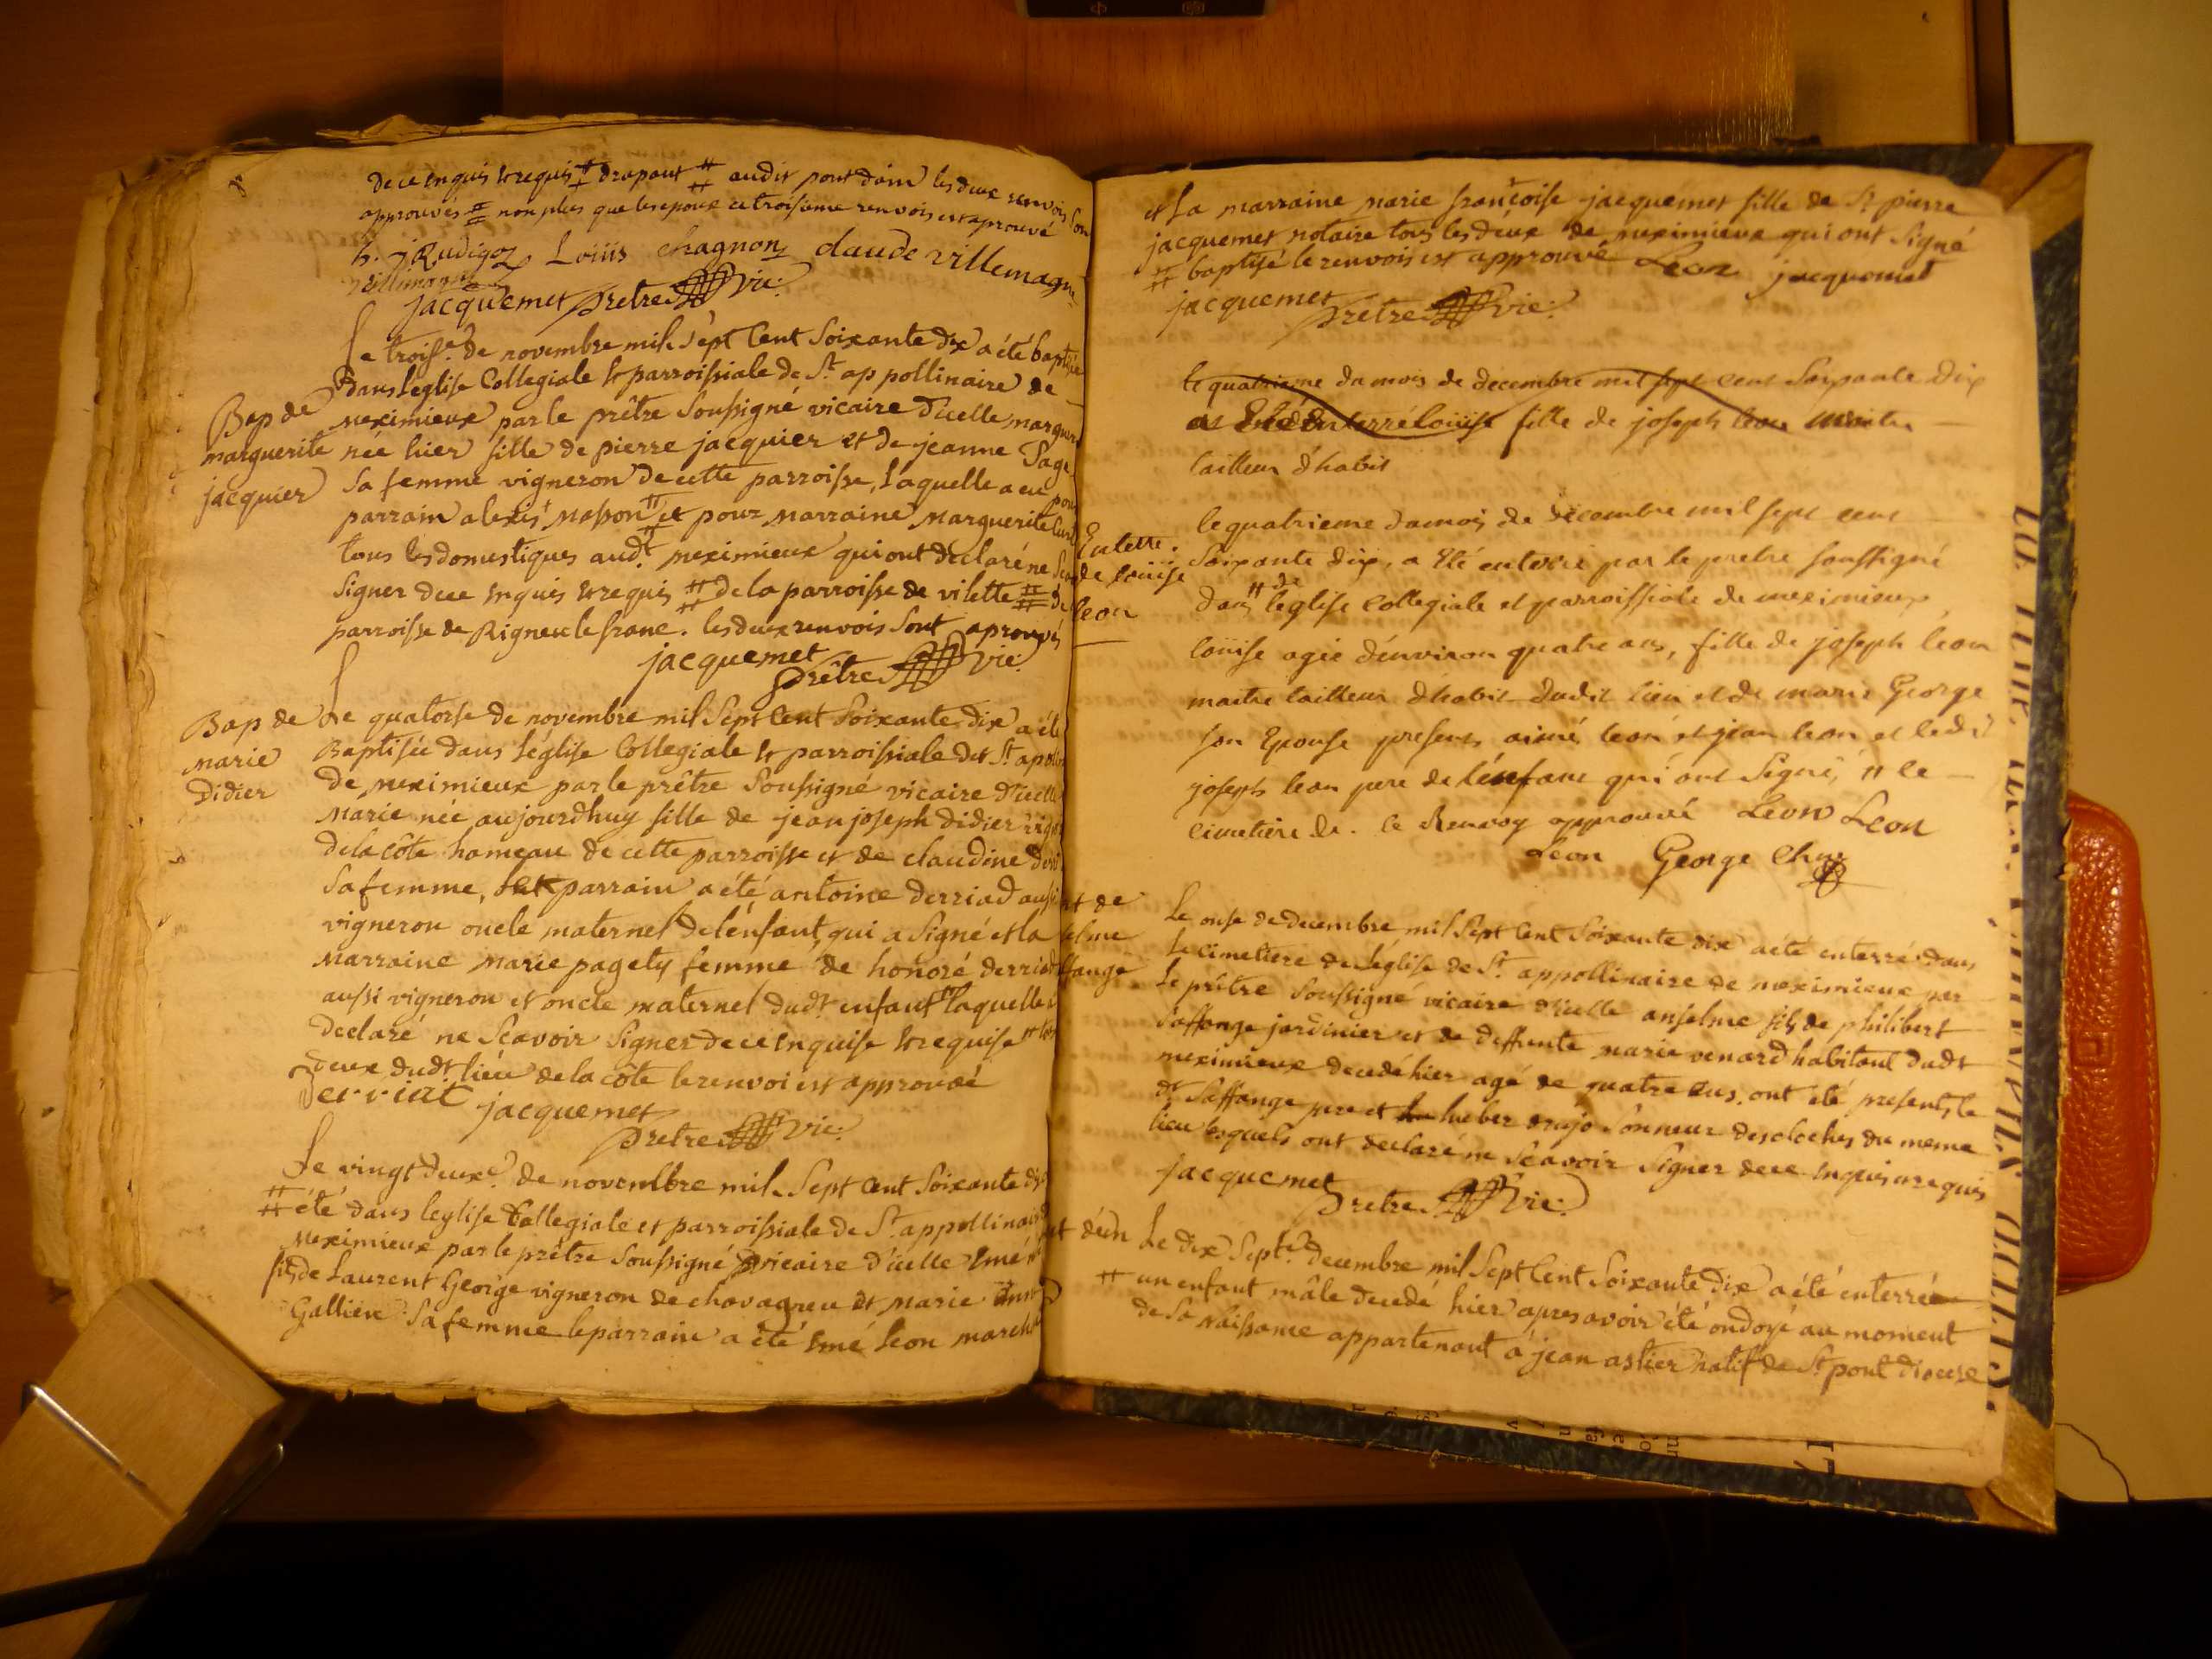 de ce enquis et requis drapaut audit pont dain les deux renvois son
approuvés non plus que les epoux ce troisieme renvois est aprouvé
jRudigoz Loüis chagnon claude villemagne
jacquemet pretre vic:
Le trois.e de novembre mil Sept Cent Soixante dix a été baptisée
dans l'eglise Collegiale et parroissiale de St. appollinaire de
Bap de
marguerite
jacquier
meximieux par le prêtre Soussigné vicaire d'icelle marguerite
née hier fille de pierre jacquier et de jeanne Page
sa femme vigneron de cette parroisse, Laquelle a eu pour
parrain alexis masson et pour marraine marguerite
tous les domestiques aud.t meximieux qui ont declaré ne Scav
Signer de ce enquis et requis de la parroisse de vilette de
parroisse de Rigneu le franc. les deux renvois Sont aprouvés
jacquemet
prêtre vic:
Bap de
marie
Didier
Le quatorse de novembre mil Sept Cent Soixante dix a été
Baptisée dans l'église Collegiale et parroissiale de St apolin
de meximieux par le prêtre Soussigné vicaire d'icelle
marie née aujourdhuy fille de jean joseph didier vign
de la côte hameau de cette parroisse et de claudine
sa femme, parrain a été antoine derriad aussi
vigneron oncle maternel de l'énfant, qui a Signé et la
marraine marie pagety femme de honoré derriad
aussi vigneron et oncle maternel dud.t enfant laquelle a
declaré ne Scavoir Signer de ce enquise et requise
deux dud.t lieu de la côte le renvoi est approuvé
derriat jacquemet
prêtre vic:
Le vingt deux.e de novembre mil Sept Cent Soixante dix
été dans l'eglise Collegiale et parroissiale de St. appollinaire
Meximieux par le prêtre Soussigné vicaire d'icelle Emé
fils de Laurent George vigneron de chavagneu et marie
Gallien Sa femme le parrain a été Emé Leon march
et La marraine marie françoise jacquemet fille de Sr. pierre
jacquemet notaire tous les deux de meximieux qui ont Signé
baptisé le renvois est approuvé Leon jacquemet
jacquemet
prêtre vic:
le quatrieme du mois de decembre mil sept cent Soixante Dix
a Eté Enterré loüise fille de joseph leon maitre
tailleur d'habit
Enterre.
de loüise
leon
le quatrieme du mois de decembre mil sept cent
Soixante dix, a Eté enterré par le pretre soussigné
dans de l'eglise Collegiale et parroissiale de meximieux
loüise agée d'environ quatre ans, fille de joseph leon
maitre tailleur d'habit dudit lieu et de marie George
son Epouse presents aimé leon et jean leon et ledit
joseph leon pere de l'énfant qui ont Signé, le
cimetiere de. le Renvoy approuvé Leon Leon
Leon George
nt de
selme
ffange
Le onse de decembre mil Sept Cent Soixante dix a été enterré dans
Le cimetiere de l'église de St. appollinaire de meximieux par
Le prêtre Soussigné vicaire d'icelle anselme fils de philibert
Saffange jardinier et de deffunte marie venard habitant dud.t
meximieux decedé hier agé de quatre ans. ont eté presents le
d.t Saffange pere et hueber Sonneur des cloches du meme
lieu lesquels ont declaré ne Scavoir Signer de ce enquis et requis
jacquemet
prêtre vic:
nt d'un
Le dix Sept.e decembre mil Sept Cent Soixante Dix a été enterré
un enfant mâle decedé hier apres avoir été ondoyé au moment
de Sa Naissance appartenant a jean astier natif de St. pont